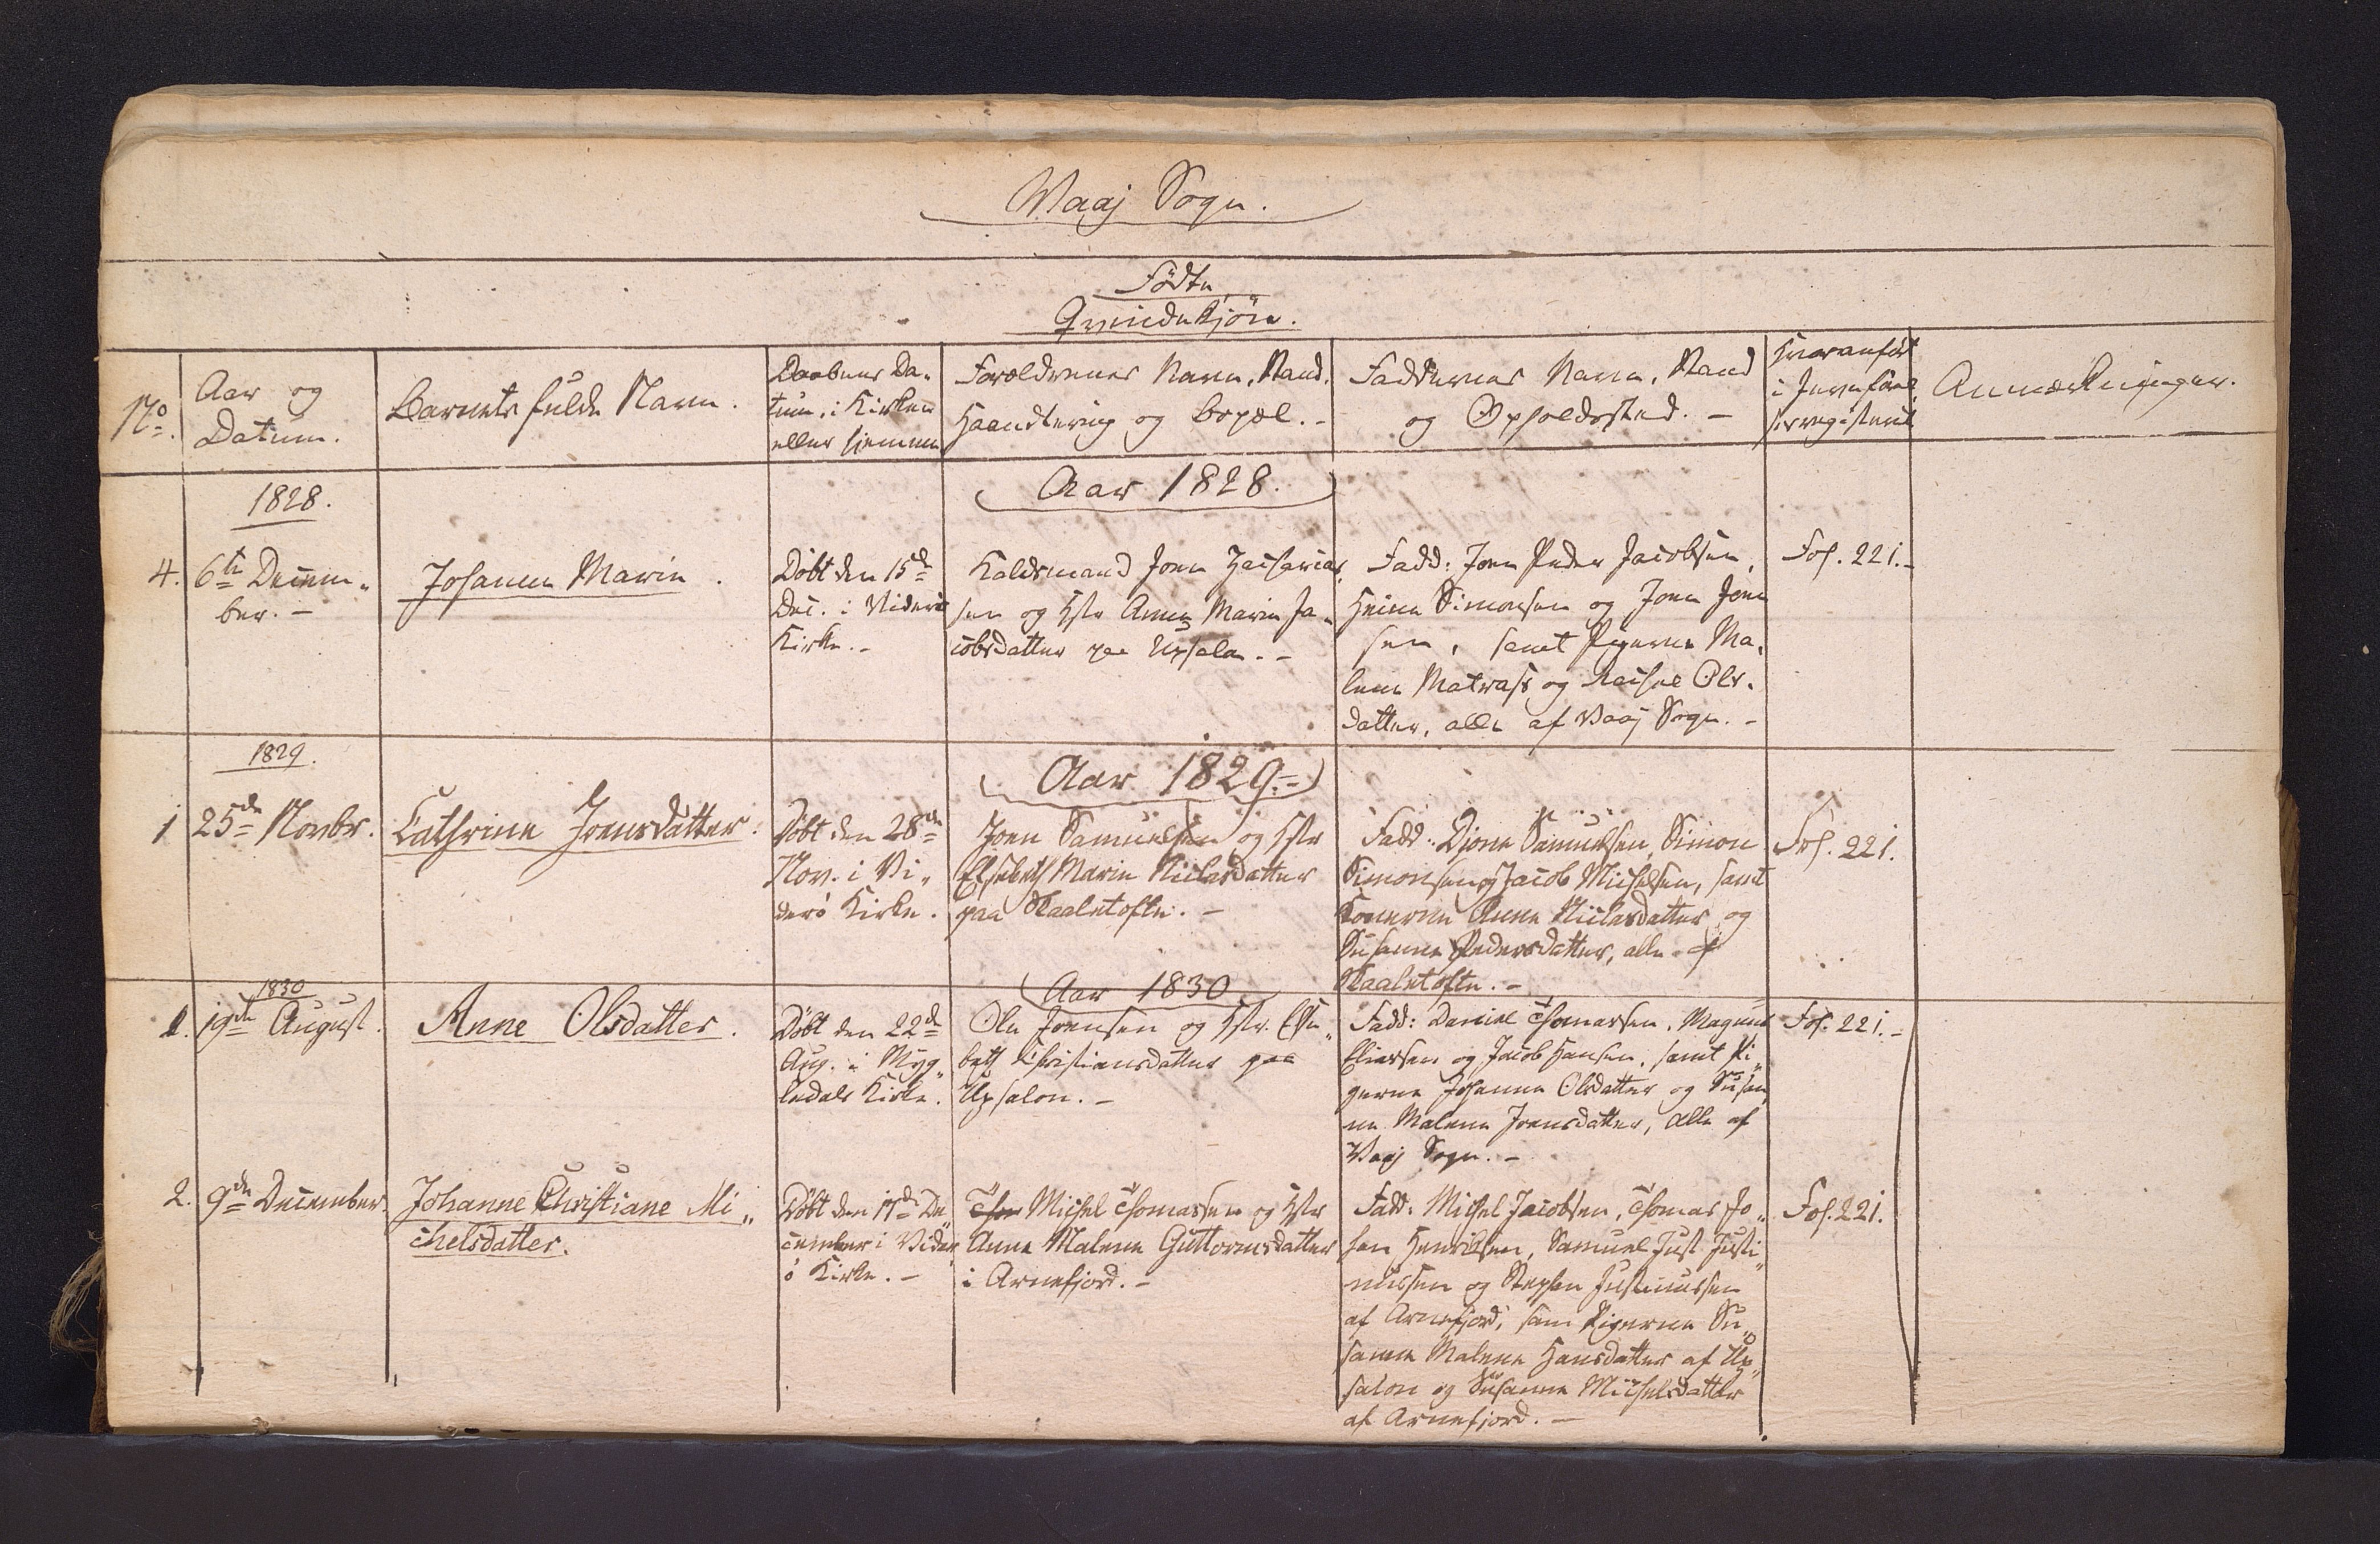 Vaaj Sogn.
Födte
Qvindekjön.
No.
Aar og
Datum.
Barnets fulde Navn.
Daabens Da-
tum, i Kirken
eller hjemme
Forældrenes Navn, Stand,
Haandtering og bopæl.-
Faddernes Navn, Stand
og Opholdssted. -
Hvor anført
i Jevnførel-
sesregisteret
Anmærkninger.
1828.
Aar 1828.
4.
6te Decem-
ber. -
Johanna Marin.
Döbt den 15de
Dec. i Viderö
Kirke. -
Koldsmand Joen Zacharias-
sen og Hstr Anna Marin Ja-
cobsdatter paa Upsalen. -
Fadd: Joen Peder Jacobsen,
Heine Simonsen og Joen Joen
sen, samt Pigerne Ma-
lene Matrass og Rachel Ols-
datter, alle af Vaaj Sogn. -
Fol. 221.-
1829.
Aar 1829.-
1
25de Novbr.
Cathrine Joensdatter.
Döbt den 28de
Nov. i Vi-
derö Kirke.
Joen Samuelsen og Hstr
Elsebeth Marin Niclasdatter
paa Skaaletofte. -
Fadd: Djone Samuelsen, Simon
Simonsen og Jacob Michelsen, samt
Konerne Anna Niclasdatter og
Susanna Pedersdatter, alle af
Skaaletofte. -
Fol. 221.
1830
Aar 1830
1.
19de August.
Anne Olsdatter.
Döbt den 22de
Aug. i Myg-
ledals Kirke.
Ole Joensen og Hstr. Else-
beth Christiansdatter paa
Upsalon. -
Fadd: Daniel Thomassen, Magnus
Eliassen og Jacob Hansen, samt Pi-
gerne Johanna Olsdatter og Susan
na Malena Joensdatter, alle af
Vaaj Sogn. -
Fol. 221.-
2.
9de December
Johanne Christiane Mi-
chelsdatter.
Döbt den 17de De-
cember i Vider
ö Kirke. -
Michel Thomassen og Hstr
Anna Malena Guttormsdatter
i Arnefjord. -
Fadd: Michel Jacobsen, Thomas Jo-
han Henriksen, Samuel Just Justi-
nussen og Stephen Justinussen
af Arnefjord, samt Pigerne Su-
sanna Malena Hansdatter af Up-
salon og Susanna Michelsdatter
af Arnefjord. -
Fol. 221.